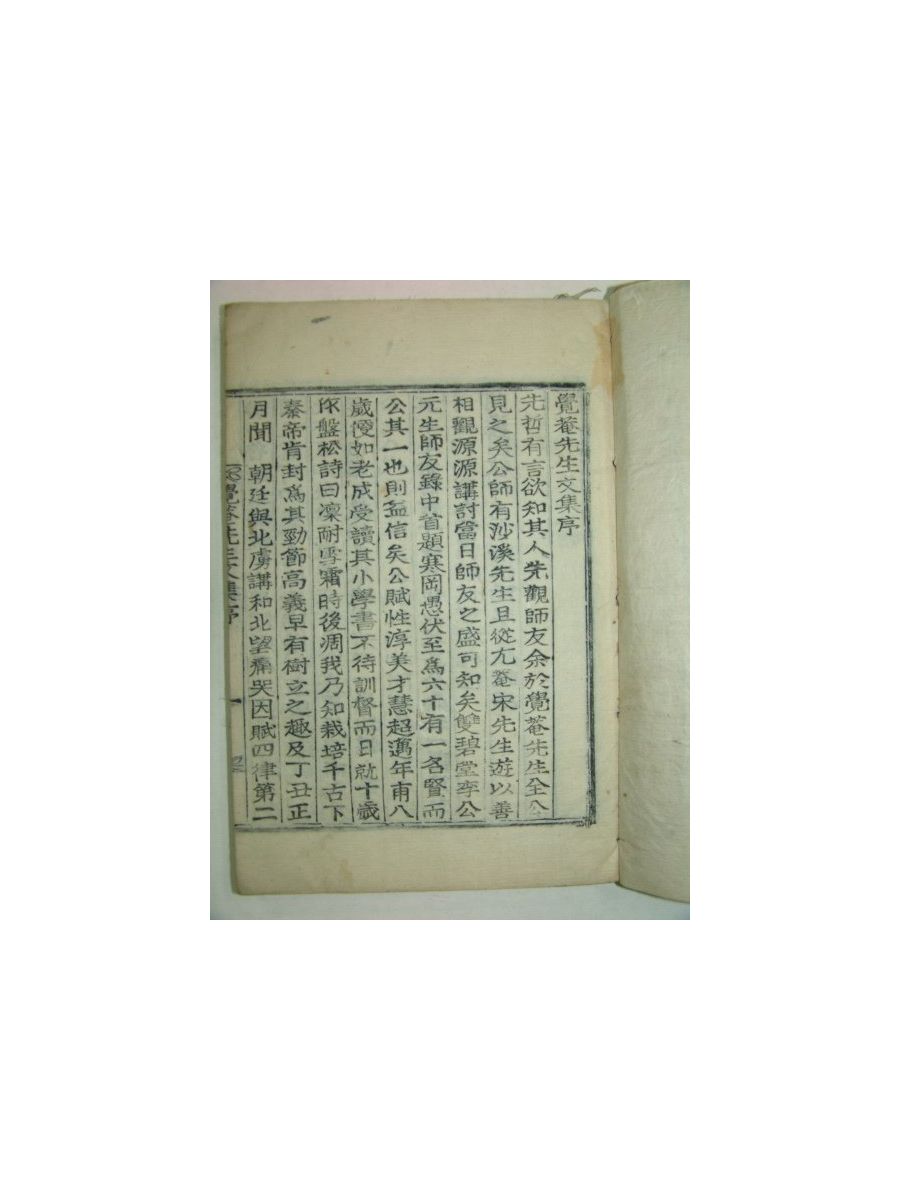 覺菴先生文集序
先哲有言欲知其人先觀師友余於覺菴先生全公
見之矣公師有沙溪先生且從尤菴宋先生遊以善
相觀源源講討當日師友之盛可知矣雙碧堂李公
元生師友錄中首題寒岡愚伏至爲六十有一名賢而
公其一也則益信矣公賦性淳美才慧超邁年甫八
歲優如老成受讀其小學書不待訓督而日就十歲
作盤松詩曰凜耐雪霜時後凋我乃知栽培千古下
秦帝肯封爲其勁節高義早有樹立之趣及丁丑正
月聞 朝廷與北虜講和北望痛哭因賦四律第二
覺菴先生文集序 一